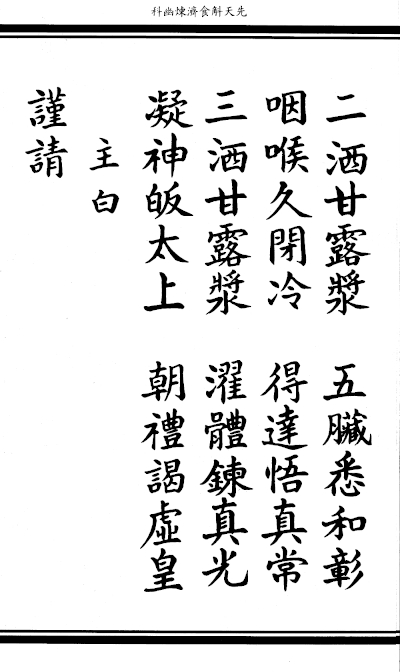 先天斛食濟煉幽科
二洒甘露漿　五臟悉和彰
咽喉久閉冷　得達悟真常
三洒甘露漿　濯體鍊真光
凝神皈太上　朝禮謁虛皇
主白
謹請